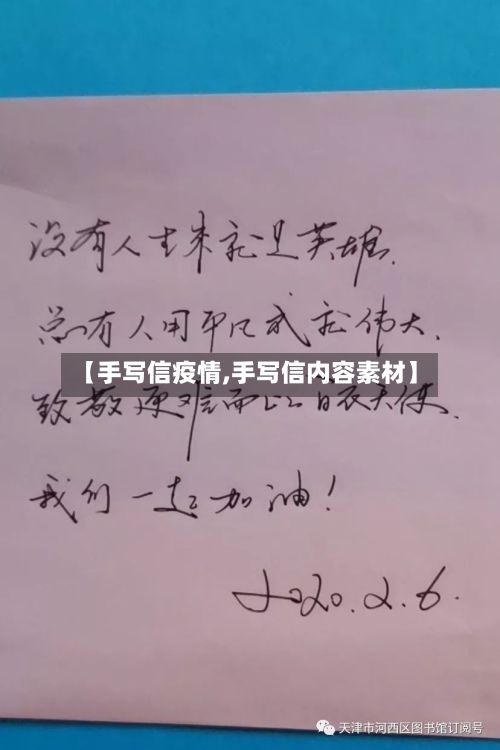 没有人生来就是英雄.
总有人用平凡成就伟大.
【手写信疫情,手写信内容素材】
致敬逆难而上白衣天使.
我们一起加油!
2020.2.6.
天津市河西区图书馆订阅号